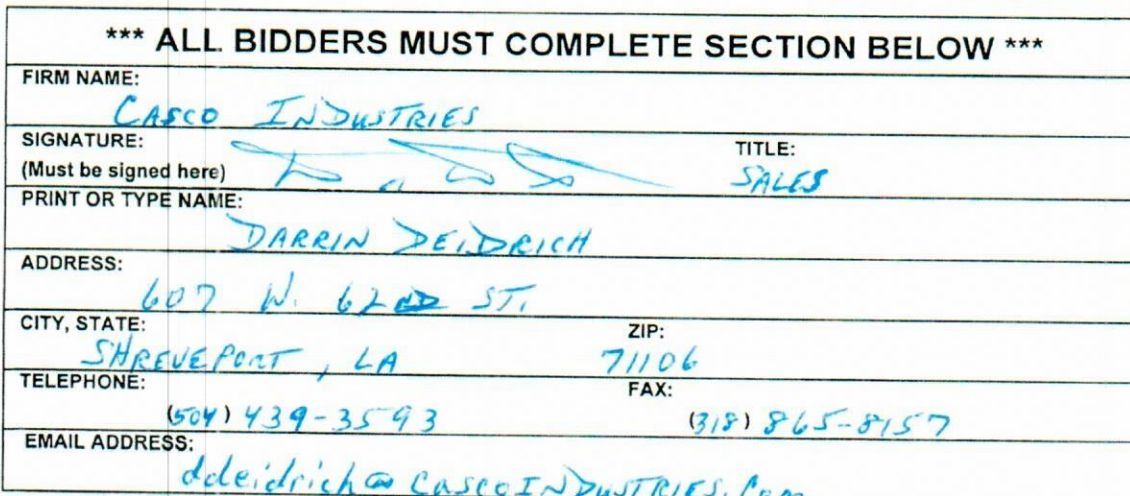 *** ALL BIDDERS MUST COMPLETE SECTION BELOW ***
FIRM NAME:
CASCO INDUSTRIES
SIGNATURE:
(Must be signed here)
TITLE:
SALES
PRINT OR TYPE NAME:
DARRIN DEIDRICH
ADDRESS:
607 W. 62ND ST.
CITY, STATE:
SHREVEPORT, LA
ZIP:
71106
TELEPHONE:
(504) 439-3593
FAX:
(318) 865-8157
EMAIL ADDRESS:
ddeidrich@CASCOINDUSTRIES.Com